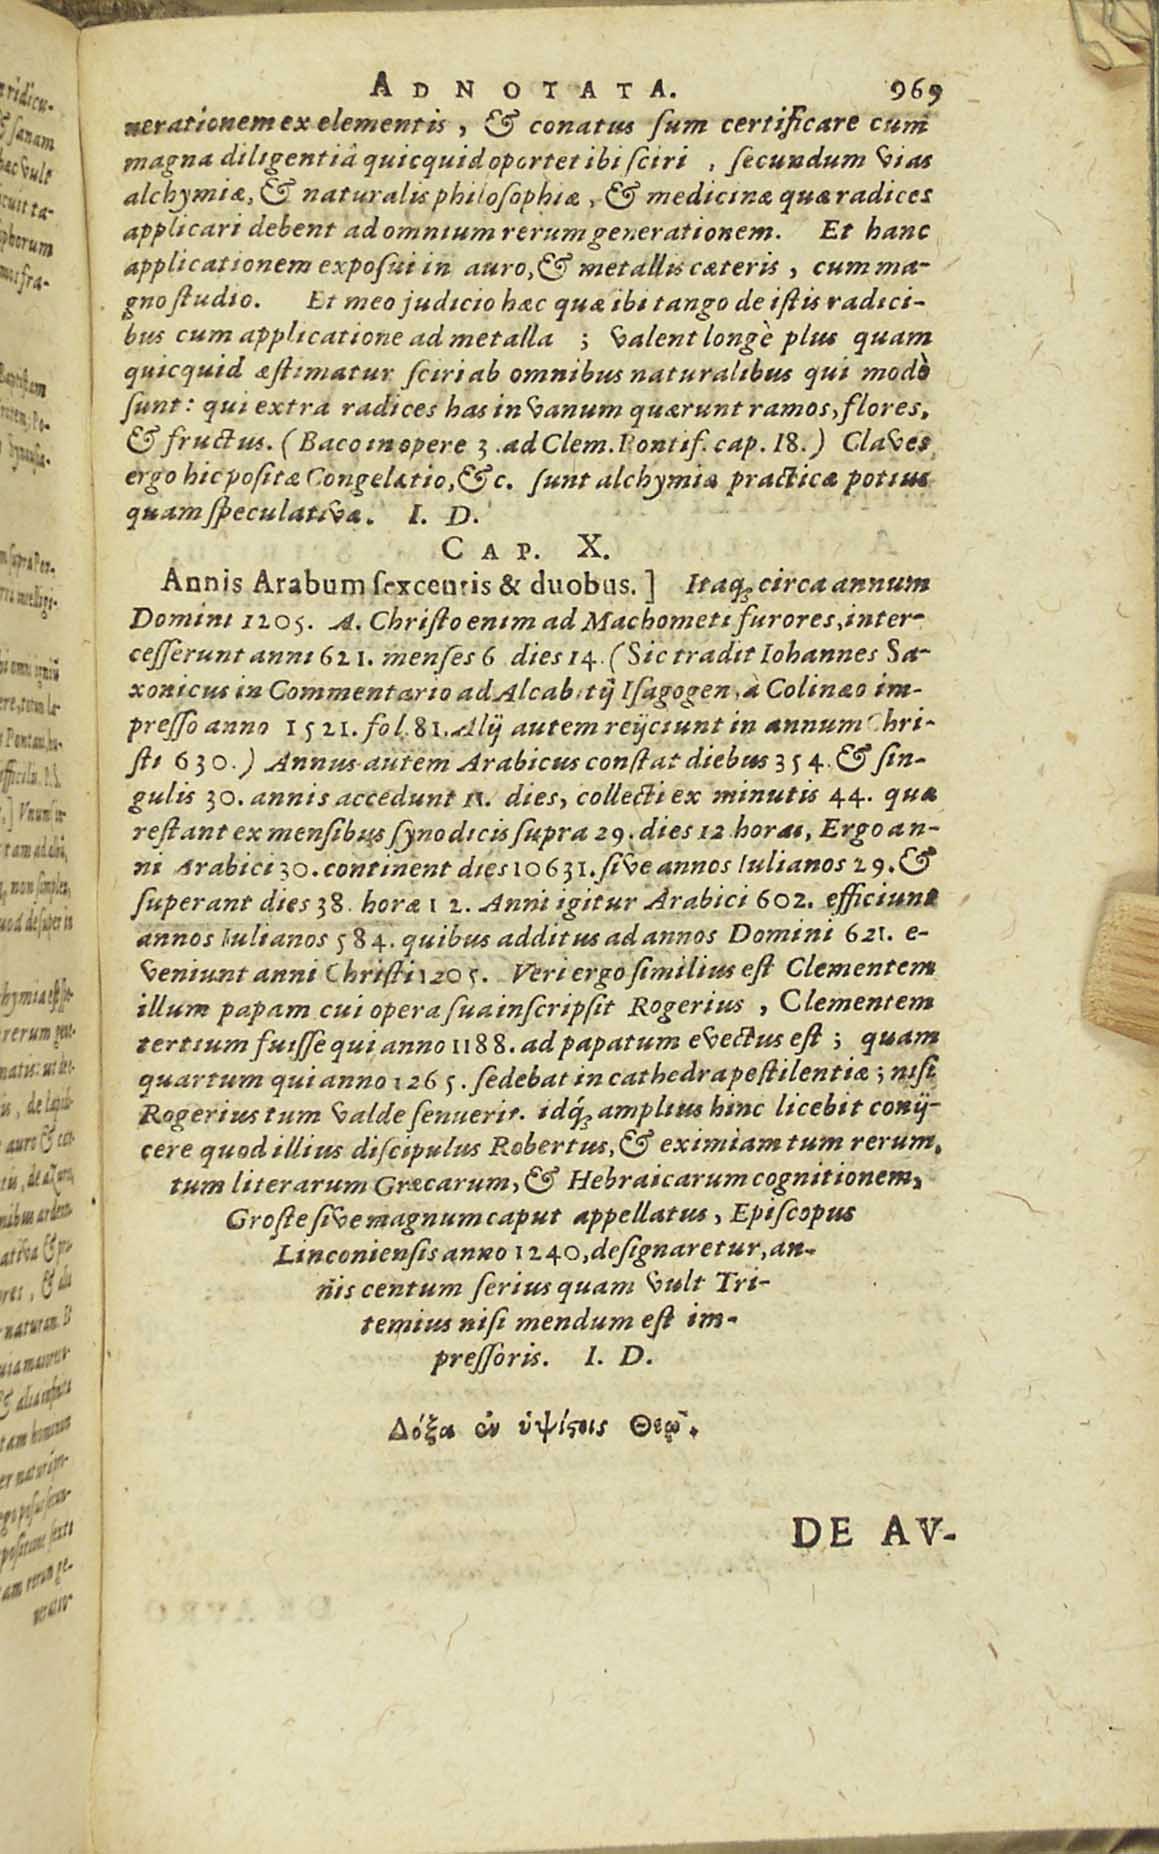 ADNOTATA. 969
nerationem ex elementis, & conatus sum certificare cum
magna diligentiâ quicquid oportet ibi sciri, secundum vias
alchymiæ, & naturalis philosophiæ, & medicinæ quæ radices
applicari debent ad omnium rerum generationem. Et hanc
applicationem exposui in auro, & metallis cæteris, cum ma-
gno studio. Et meo judicio hæc quæ ibi tango de istis radici-
bus cum applicatione ad metalla ; valent longè plus quam
quicquid æstimatur sciri ab omnibus naturalibus qui modò
sunt: qui extra radices has in vanum quærunt ramos, flores,
& fructus. (Baco in opere 3. ad Clem. Pontif. cap. 18.) Claves
ergo hic positæ Congelatio, &c. sunt alchymiæ practicæ potius
quam speculativæ. I. D.
CAP. X.
Annis Arabum sexcentis & duobus.] Itaq; circa annum
Domini 1205. A. Christo enim ad Machometi furores, inter-
cesserunt anni 621. menses 6 dies 14. (Sic tradit Iohannes Sa-
xonicus in Commentario ad Alcabitij Isagogen, à Colinæo im-
presso anno 1521. fol. 81. Alij autem reijciunt in annum Chri-
sti 630.) Annus autem Arabicus constat diebus 354. & sin-
gulis 30. annis accedunt 11. dies, collecti ex minutis 44. quæ
restant ex mensibus synodicis supra 29. dies 12 horas, Ergo an-
ni Arabici 30. continent dies 10631. sive annos Iulianos 29. &
superant dies 38. horæ 12. Anni igitur Arabici 602. efficiunt
annos Iulianos 584. quibus additus ad annos Domini 621. e-
veniunt anni Christi 1205. Veri ergo similius est Clementem
illum papam cui opera sua inscripsit Rogerius, Clementem
tertium fuisse qui anno 1188. ad papatum evectus est ; quam
quartum qui anno 1265. sedebat in cathedra pestilentiæ ; nisi
Rogerius tum valde senuerit. idq́; amplius hinc licebit conij-
cere quod illius discipulus Robertus, & eximiam tum rerum,
tum literarum Græcarum, & Hebraicarum cognitionem,
Groste sive magnum caput appellatus, Episcopus
Linconiensis anno 1240, designaretur, an-
nis centum serius quam vult Tri-
temius nisi mendum est im-
pressoris. I. D.
Δόξα ἐν ὑψίςοις Θεῷ.
DE AV-